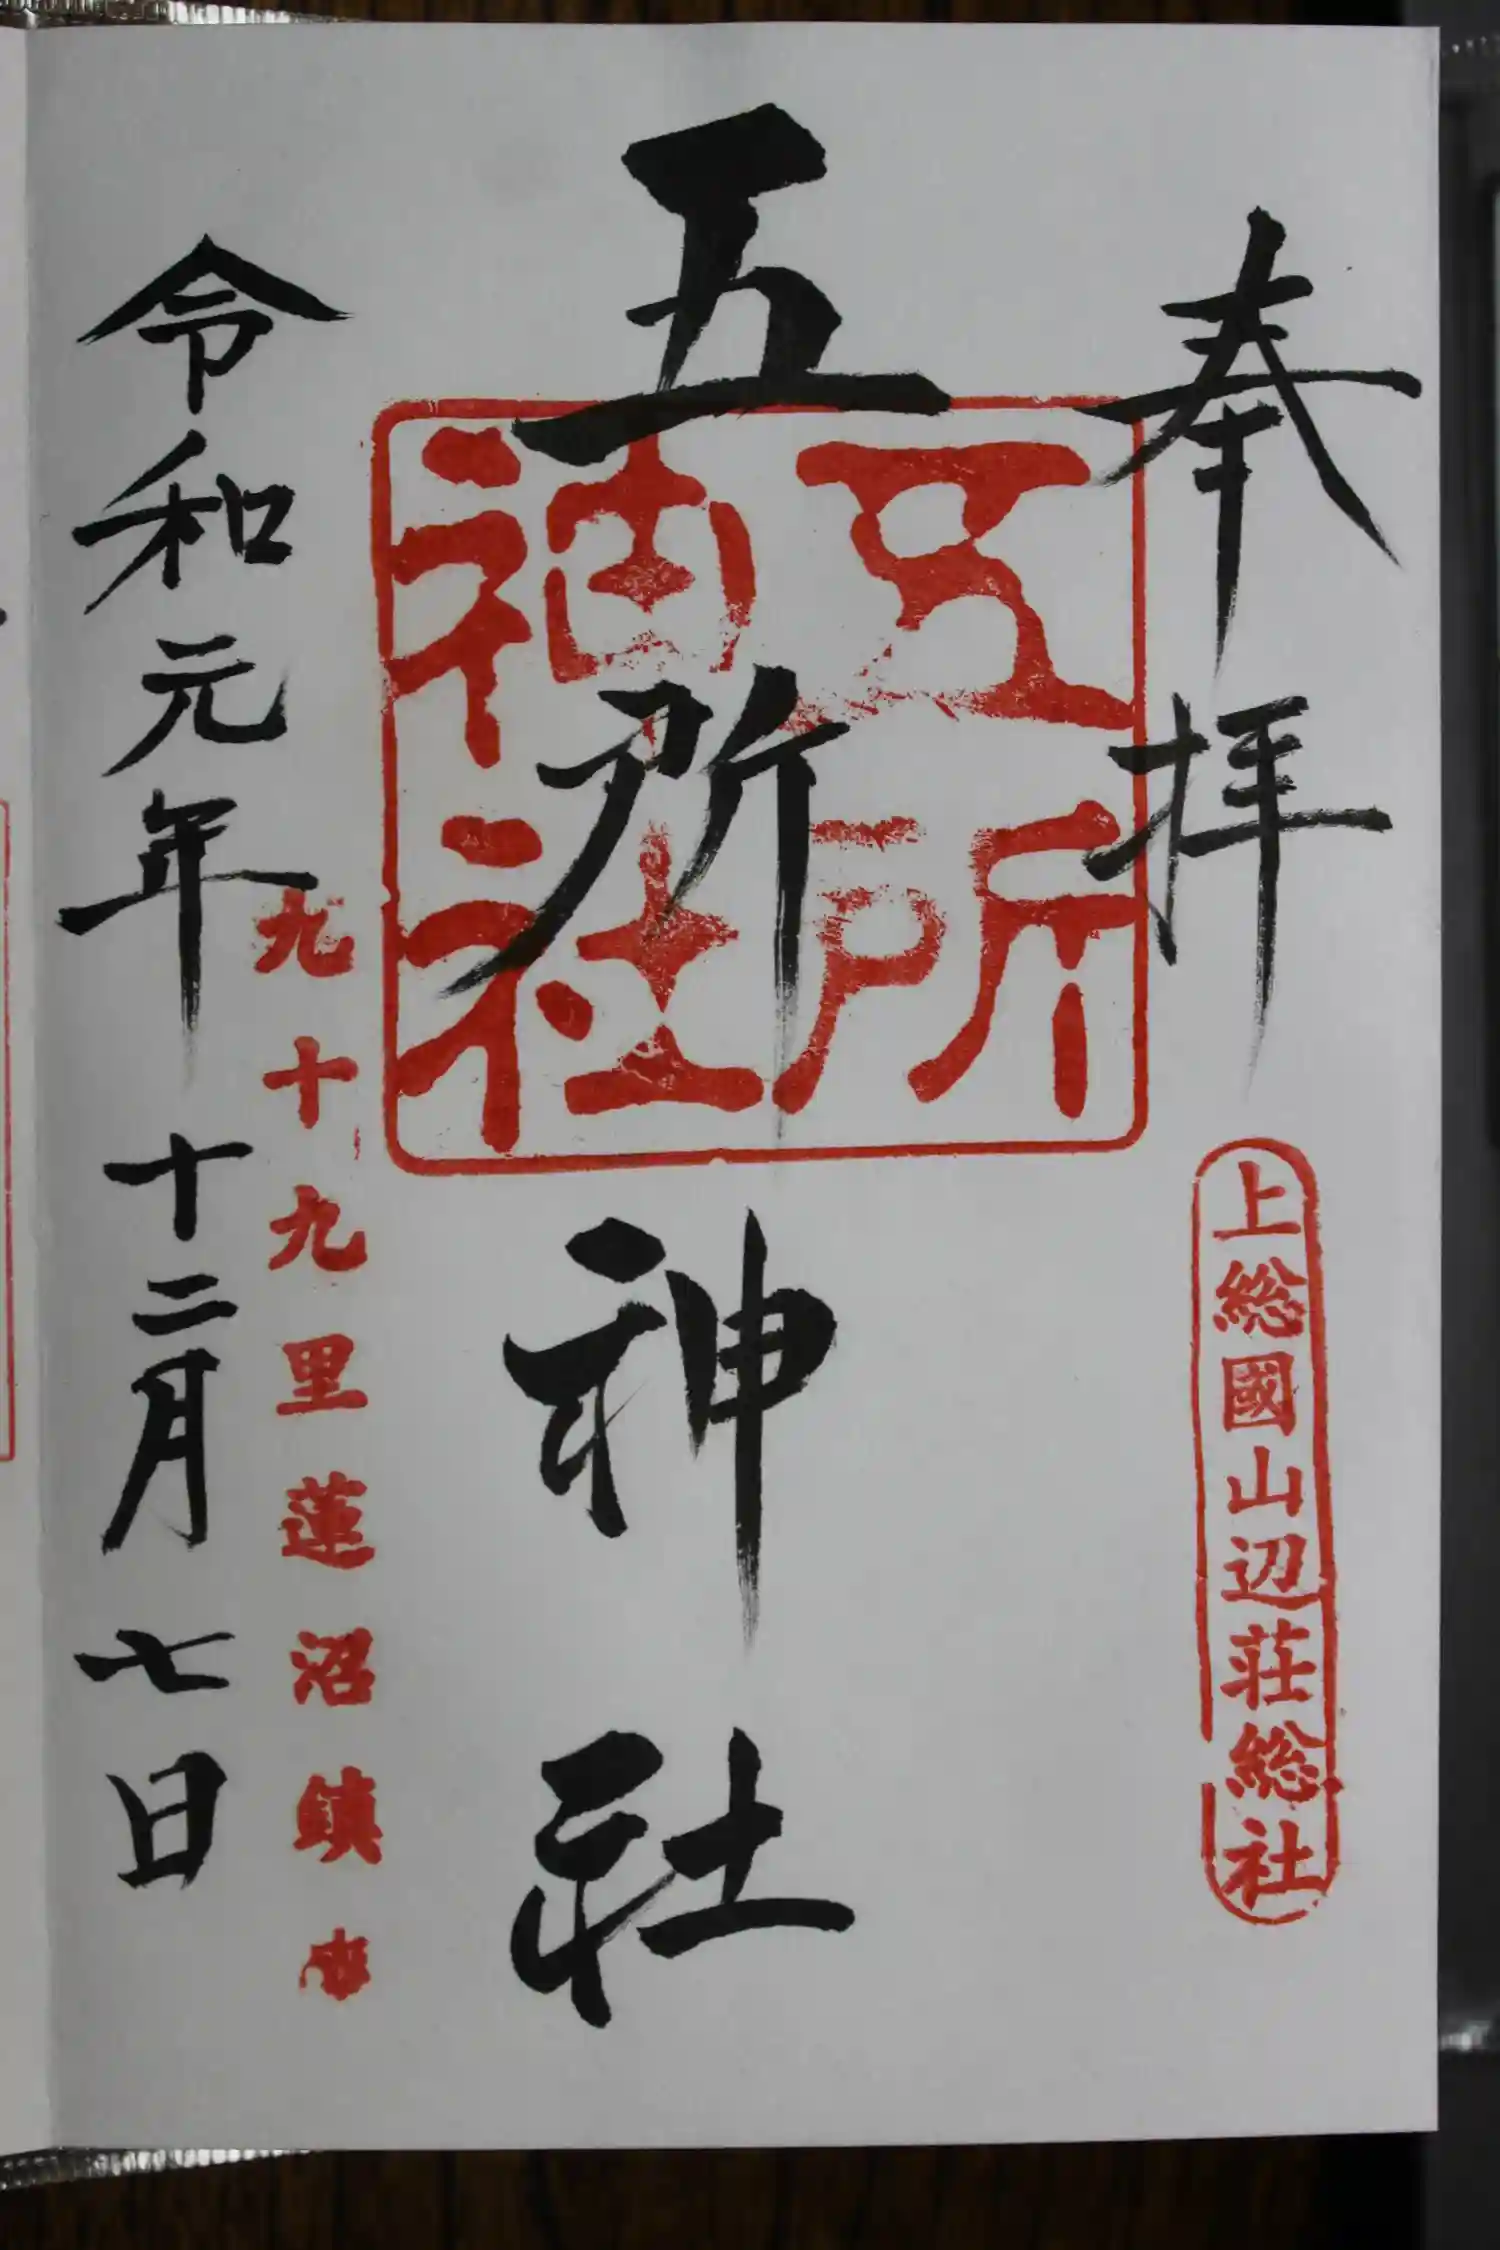 奉拝
上総國山辺荘総社
五所神社
五所神社
九十九里蓮沼鎮守
令和元年十二月七日